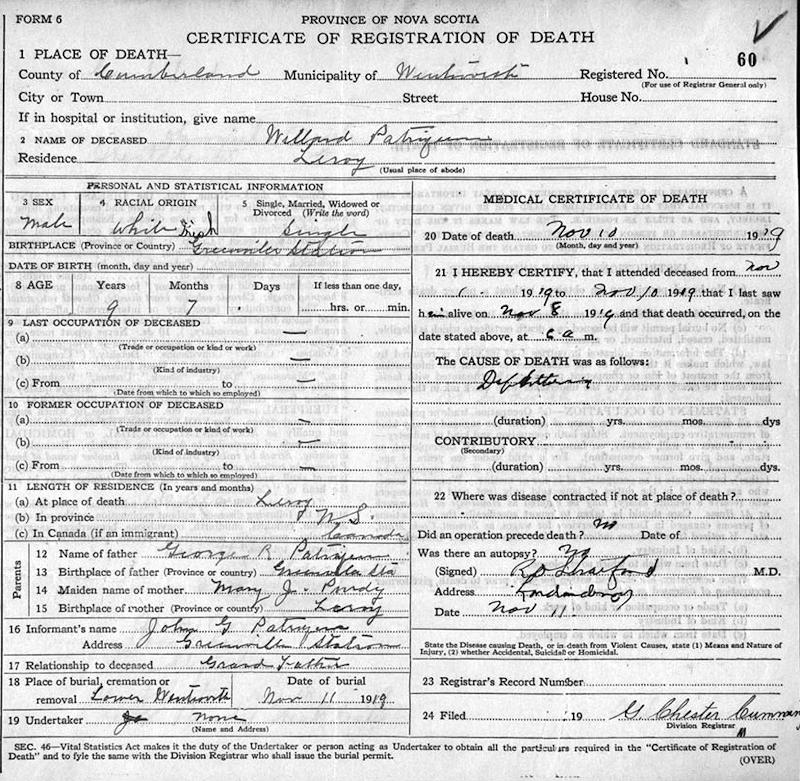 FORM 6
PROVINCE OF NOVA SCOTIA
CERTIFICATE OF REGISTRATION OF DEATH
1 PLACE OF DEATH—
County of Cumberland Municipality of Wentworth Registered No. 60
(For use of Registrar General only)
City or Town Street House No.
If in hospital or institution, give name
2 NAME OF DECEASED Willard Patriquin
Residence Leroy
(Usual place of abode)
PERSONAL AND STATISTICAL INFORMATION
3 SEX Male
4 RACIAL ORIGIN White Irish
5 Single, Married, Widowed or Divorced (Write the word) Single
BIRTHPLACE (Province or Country) Greenville Station
DATE OF BIRTH (month, day and year)
8 AGE Years Months Days If less than one day,
9 7 hrs. or min.
9 LAST OCCUPATION OF DECEASED
(a) —
(Trade or occupation or kind or work)
(b) —
(Kind of industry)
(c) From to —
(Date from which to which so employed)
10 FORMER OCCUPATION OF DECEASED
(a) —
(Trade or occupation or kind of work)
(b) —
(Kind of industry)
(c) From to —
(Date from which to which so employed)
11 LENGTH OF RESIDENCE (In years and months)
(a) At place of death Leroy
(b) In province N.S.
(c) In Canada (if an immigrant) Canada
Parents
12 Name of father George R Patriquin
13 Birthplace of father (Province or country) Greenville Sta
14 Maiden name of mother Mary J. Purdy
15 Birthplace of mother (Province or country) Leroy
16 Informant's name John G Patriquin
Address Greenville Station
17 Relationship to deceased Grand Father
18 Place of burial, cremation or removal Lower Wentworth
Date of burial Nov 11 1919
19 Undertaker none
(Name and Address)
MEDICAL CERTIFICATE OF DEATH
20 Date of death Nov 10 1919
(Month, day and year)
21 I HEREBY CERTIFY, that I attended deceased from Nov
1. 1919 to Nov 10 1919 that I last saw
him alive on Nov 8 1919 and that death occurred, on the
date stated above, at 6 a m.
The CAUSE OF DEATH was as follows:
Diphtheria
(duration) yrs. mos. dys
CONTRIBUTORY
(Secondary)
(duration) yrs. mos. dys.
22 Where was disease contracted if not at place of death?
Did an operation precede death? no Date of
Was there an autopsy? no
(Signed) M.D.
Address Londonderry
Date Nov 11
State the Disease causing Death, or in death from Violent Causes, state (1) Means and Nature of Injury, (2) whether Accidental, Suicidal or Homicidal.
23 Registrar's Record Number
24 Filed 19 G. Chester Cumming
Division Registrar
SEC. 46—Vital Statistics Act makes it the duty of the Undertaker or person acting as Undertaker to obtain all the particulars required in the "Certificate of Registration of
Death" and to fyle the same with the Division Registrar who shall issue the burial permit. (OVER)